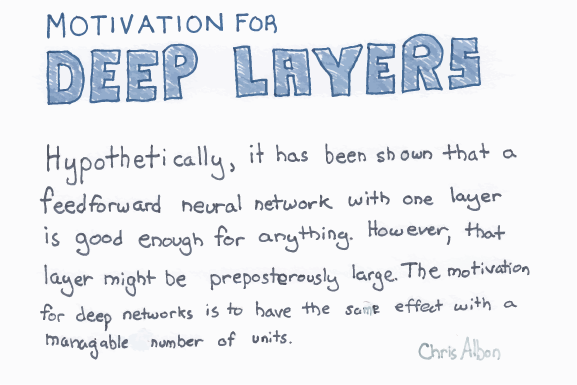 MOTIVATION FOR
DEEP LAYERS
Hypothetically, it has been shown that a
feedforward neural network with one layer
is good enough for anything. However, that
layer might be preposterously large. The motivation
for deep networks is to have the same effect with a
managable number of units.
Chris Albon